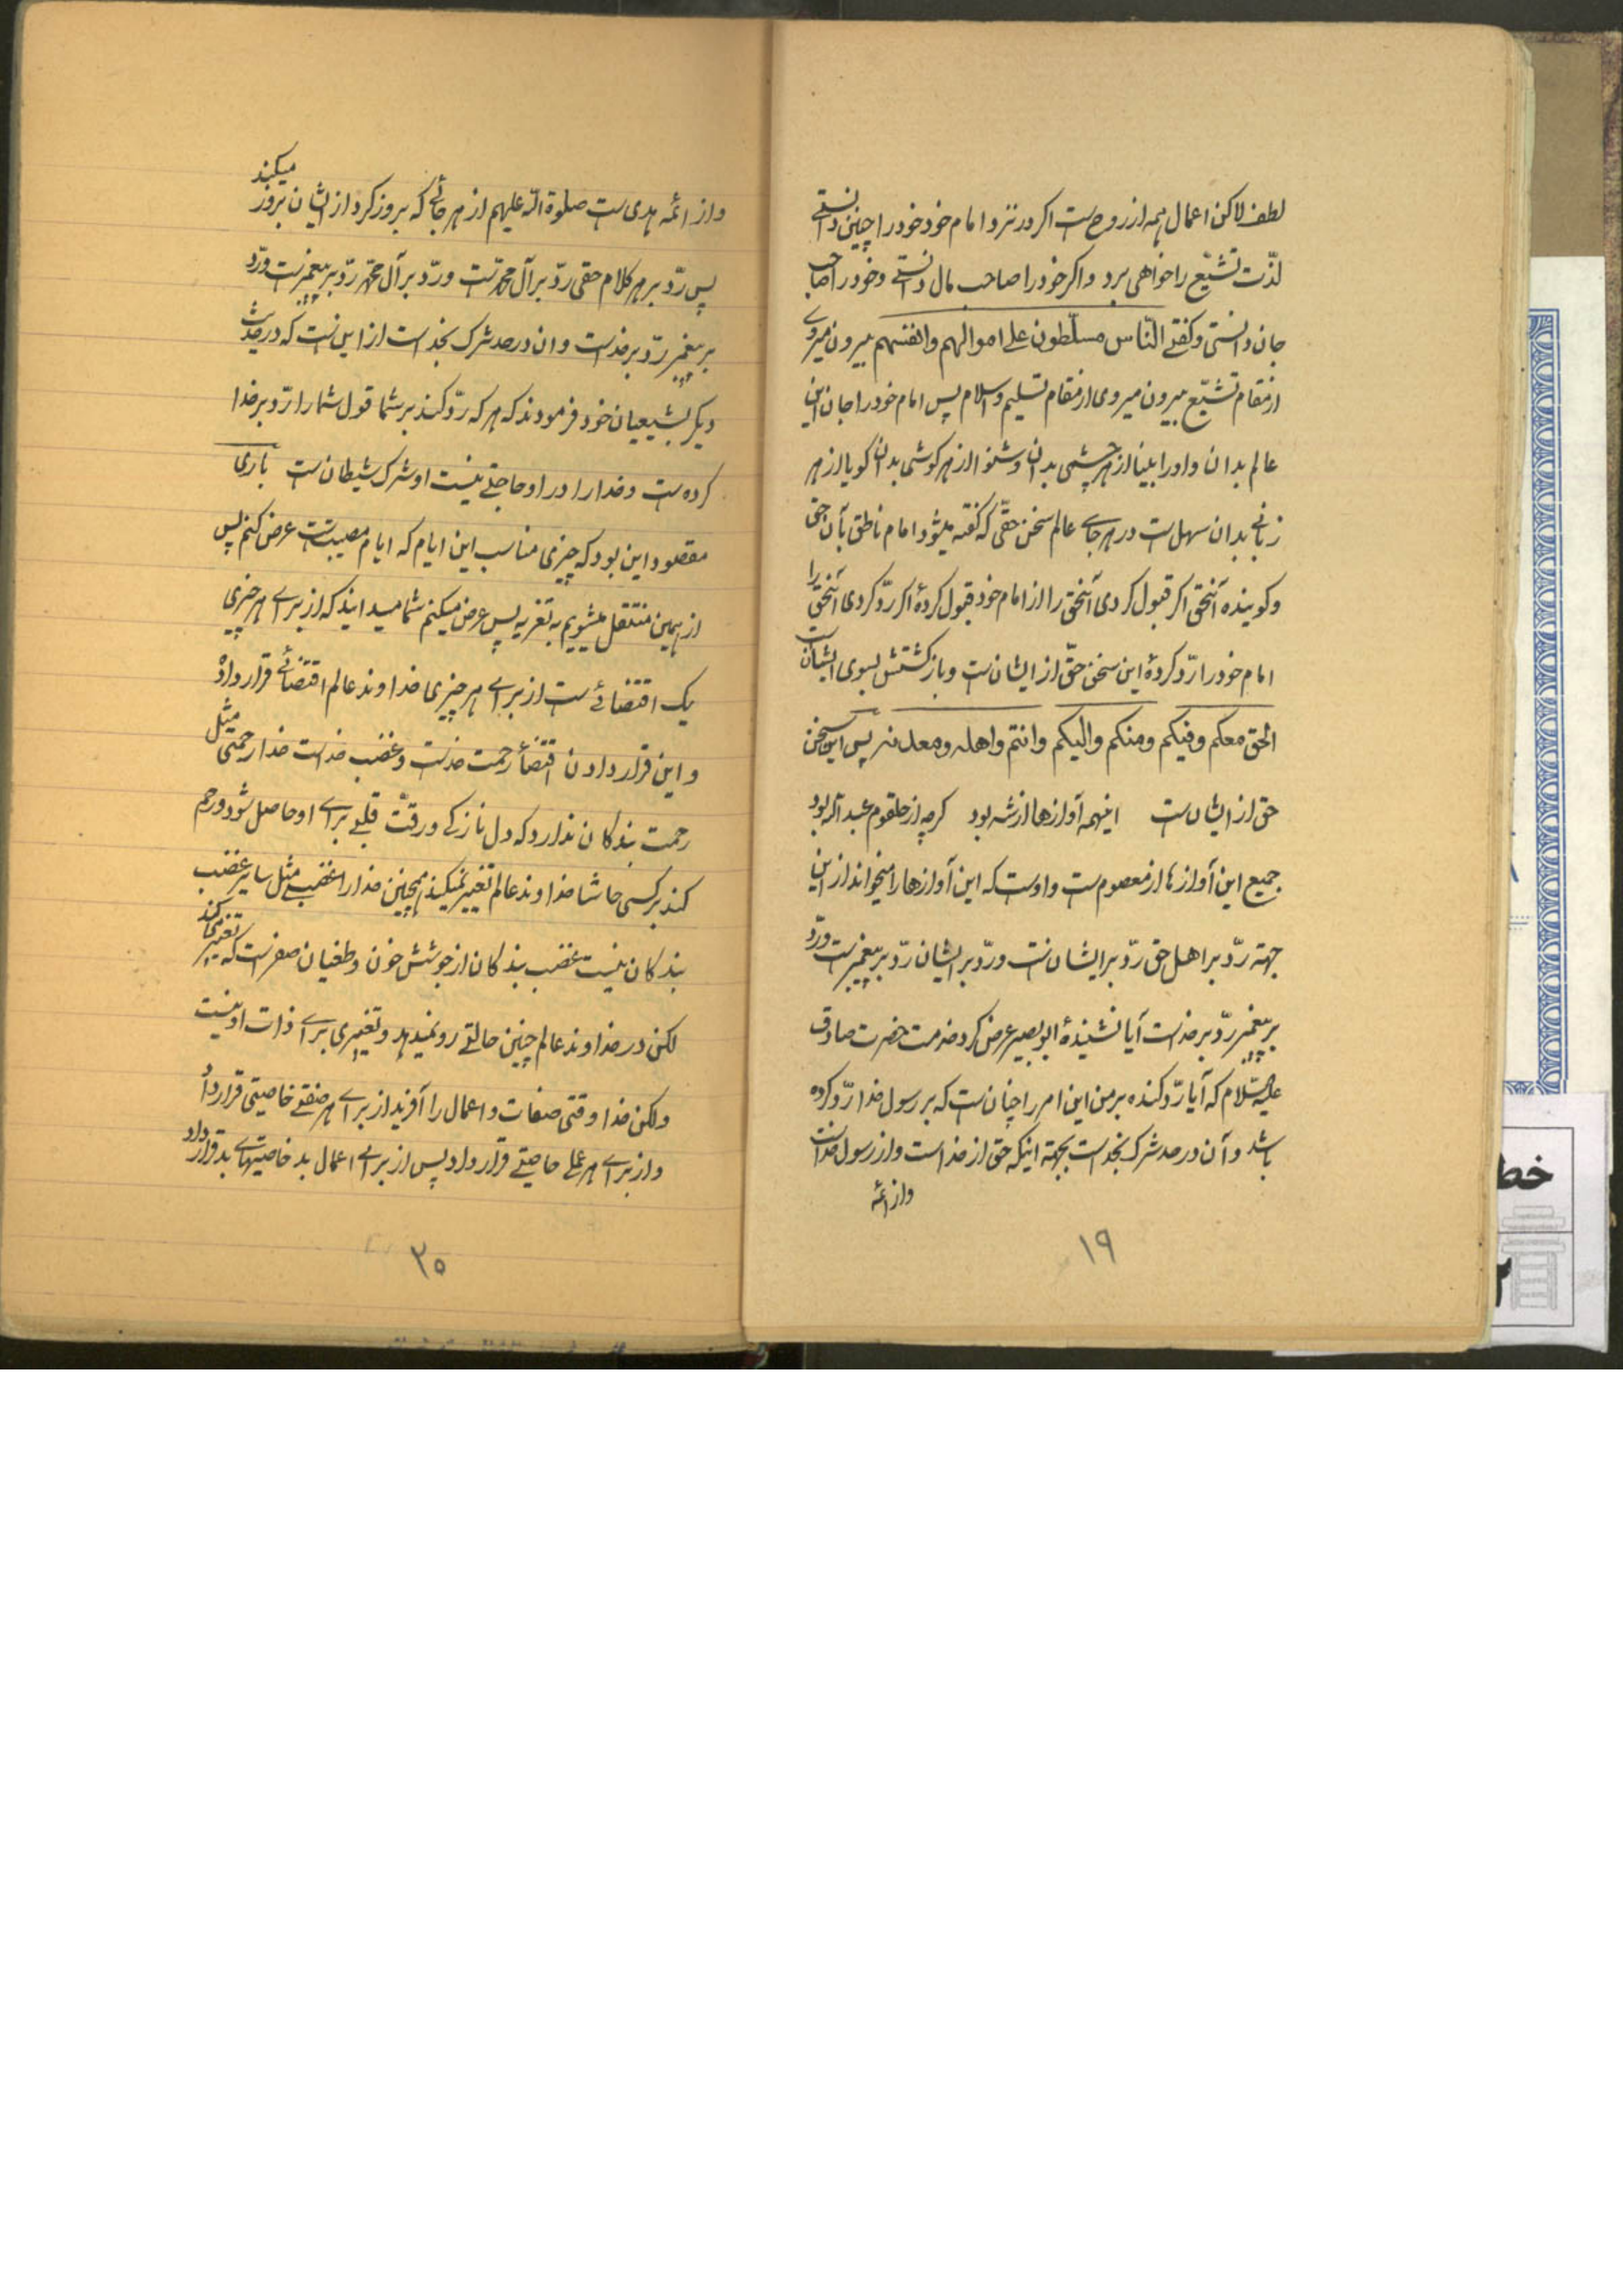 لطف لاکن اعمال همه از روح‌ست اکر در نزد امام خود خود را چنین دانستی
لذّت تشیّع را خواهی برد و اکر خود را صاحب مال دانستی و خود را صاحب
جان دانستی و کفتی النّاس مسلّطون علی اموالهم وانفسهم بیرون میروی
از مقام تشیّع بیرون میروی از مقام تسلیم و اسلام پس امام خود را جان این
عالم بدان و او را بینا از هر چشمی بدان و شنوا از هر کوشی بدان کویا از هر
زبانی بدان سهل‌ست در هر جای عالم سخن حقّی که کفته میشود امام ناطق بآن حق
و کوینده آنحق اکر قبول کردی آنحق را از امام خود قبول کردهٔ اکر ردّ کردی آنحق را
امام خود را ردّ کردهٔ این سخن حقّ از ایشان‌ست و بازکشتش بسوی ایشان‌ست
الحق معکم وفیکم ومنکم والیکم وانتم واهله ومعدنه پس این سخن
حق از ایشان‌ست اینهمه آوازها از شه بود کرچه از حلقوم عبد الله بود
جمیع این آوازها از معصوم‌ست و اوست که این آوازها را میخواند از این
جهة ردّ بر اهل حق ردّ بر ایشانست و ردّ بر ایشان ردّ بر پیغمبرست و ردّ
بر پیغمبر ردّ بر خداست آیا نشنیدهٔ ابوبصیر عرض کرد خدمت حضرت صادق
علیه السّلام که آیا ردّ کننده بر من این امر را چنان‌ست که بر رسول خدا ردّ کرده
باشد و آن در حد شرک بخداست بجهة اینکه حق از خداست و از رسول خداست
و از ائمه
۱۹
و از ائمه هدی‌ست صلوة الله علیهم از هر جائی که بروز کرد از ایشان بروز میکند
پس ردّ بر هر کلام حقی ردّ بر آل محمد‌ست و ردّ بر آل محمّد ردّ بر پیغمبرست و ردّ
بر پیغمبر ردّ بر خداست و ان در حد شرک بخداست از این‌ست که در حدیث
دیکر بشیعیان خود فرمودند که هر که ردّ کند بر شما قول شما را ردّ بر خدا
کرده‌ست و خدا را در او حاجتی نیست او شرک شیطان‌ست باری
مقصود این بود که چیزی مناسب این ایام که ایام مصیبت‌ست عرض کنم پس
از همین منتقل میشویم به تعزیه پس عرض میکنم شما میدانید که از برای هر چیزی
یک اقتضائی‌ست از برای هر چیزی خداوند عالم اقتضائی قرار داده
و این قرار دادن اقتضا رحمت خداست و غضب خداست خدا رحمتی مثل
رحمت بندکان ندارد که دل نازکی و رقّت قلبی برای او حاصل شود و رحم
کند بر کسی حاشا خداوند عالم تغییر نمیکند همچنین خدا را غضبی مثل سایر غضب
بندکان نیست غضب بندکان از جوشش خون و طغیان صفراست که تغییر میکند
لکن در خداوند عالم چنین حالتی رو نمیدهد و تغییری برای ذات او نیست
ولکن خدا وقتی صفات و اعمال را آفرید از برای هر صفتی خاصیتی قرار داد
و از برای هر عملی خاصیتی قرار داد پس از برای اعمال بد خاصیتهای بد قرار داد
۲۰
خط
۲